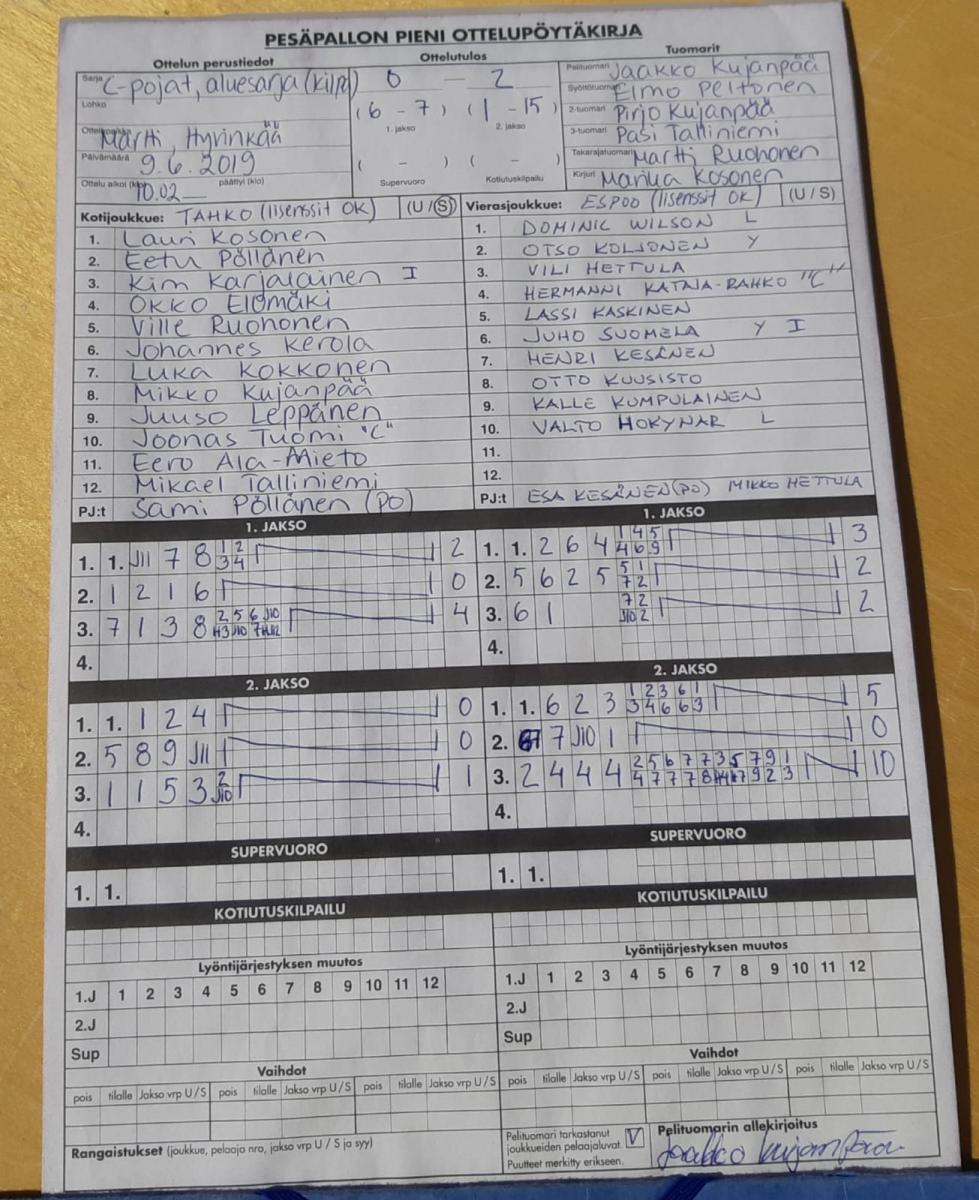 PESÄPALLON PIENI OTTELUPÖYTÄKIRJA
Ottelun perustiedot
Sarja C-pojat, aluesarja (kilpa)
Lohko
Martti, Hyvinkää
Päivämäärä 9.6.2019
Ottelu alkoi (klo) 10.02 päättyi (klo)
Ottelutulos
0 – 2
(6 – 7) (1 – 15)
1. jakso 2. jakso
( – ) ( – )
Supervuoro Kotiutuskilpailu
Tuomarit
Pelituomari Jaakko Kujanpää
Syöttötuomari Elmo Peltonen
2-tuomari Pirjo Kujanpää
3-tuomari Pasi Talliniemi
Takarajatuomari Martti Ruohonen
Kirjuri Marika Kosonen
Kotijoukkue: TAHKO (lisenssit OK) (U / S)
1. Lauri Kosonen
2. Eetu Pöllänen
3. Kim Karjalainen I
4. Okko Elomäki
5. Ville Ruohonen
6. Johannes Kerola
7. Luka Kokkonen
8. Mikko Kujanpää
9. Juuso Leppänen
10. Joonas Tuomi "C"
11. Eero Ala-Mieto
12. Mikael Talliniemi
PJ:t Sami Pöllänen (PO)
Vierasjoukkue: ESPOO (lisenssit OK) (U / S)
1. DOMINIC WILSON L
2. OTSO KOLJONEN Y
3. VILI HETTULA
4. HERMANNI KATAJA-RAHKO "C"
5. LASSI KASKINEN
6. JUHO SUOMELA Y I
7. HENRI KESÄNEN
8. OTTO KUUSISTO
9. KALLE KUMPULAINEN
10. VALTO HOKYNAR L
11.
12.
PJ:t ESA KESÄNEN (PO) MIKKO HETTULA
1. JAKSO
1. 1. J11 7 8 1 2 2
3 4
2. 1 2 1 6 0
3. 7 1 3 8 2 5 6 J10 4
4.
1. JAKSO
1. 1. 2 6 4 1 4 5 3
4 6 9
2. 5 6 2 5 5 1 2
7 2
3. 6 1 7 2 2
J10 2
4.
2. JAKSO
1. 1. 1 2 4 0
2. 5 8 9 J11 0
3. 1 1 5 3 2 1
J10
4.
2. JAKSO
1. 1. 6 2 3 1 2 3 6 1 5
3 4 6 6 3
2. 7 J10 1 0
3. 2 4 4 4 2 5 6 7 7 3 5 7 9 1 10
4.
SUPERVUORO
1. 1.
SUPERVUORO
1. 1.
KOTIUTUSKILPAILU
KOTIUTUSKILPAILU
Lyöntijärjestyksen muutos
1.J 1 2 3 4 5 6 7 8 9 10 11 12
2.J
Sup
Lyöntijärjestyksen muutos
1.J 1 2 3 4 5 6 7 8 9 10 11 12
2.J
Sup
Vaihdot
pois tilalle Jakso vrp U / S pois tilalle Jakso vrp U / S pois tilalle Jakso vrp U / S
Vaihdot
pois tilalle Jakso vrp U / S pois tilalle Jakso vrp U / S pois tilalle Jakso vrp U / S
Rangaistukset (joukkue, pelaaja nro, jakso vrp U / S ja syy)
Pelituomari tarkastanut
joukkueiden pelaajaluvat. V
Puutteet merkitty erikseen.
Pelituomarin allekirjoitus
Jaakko Kujanpää